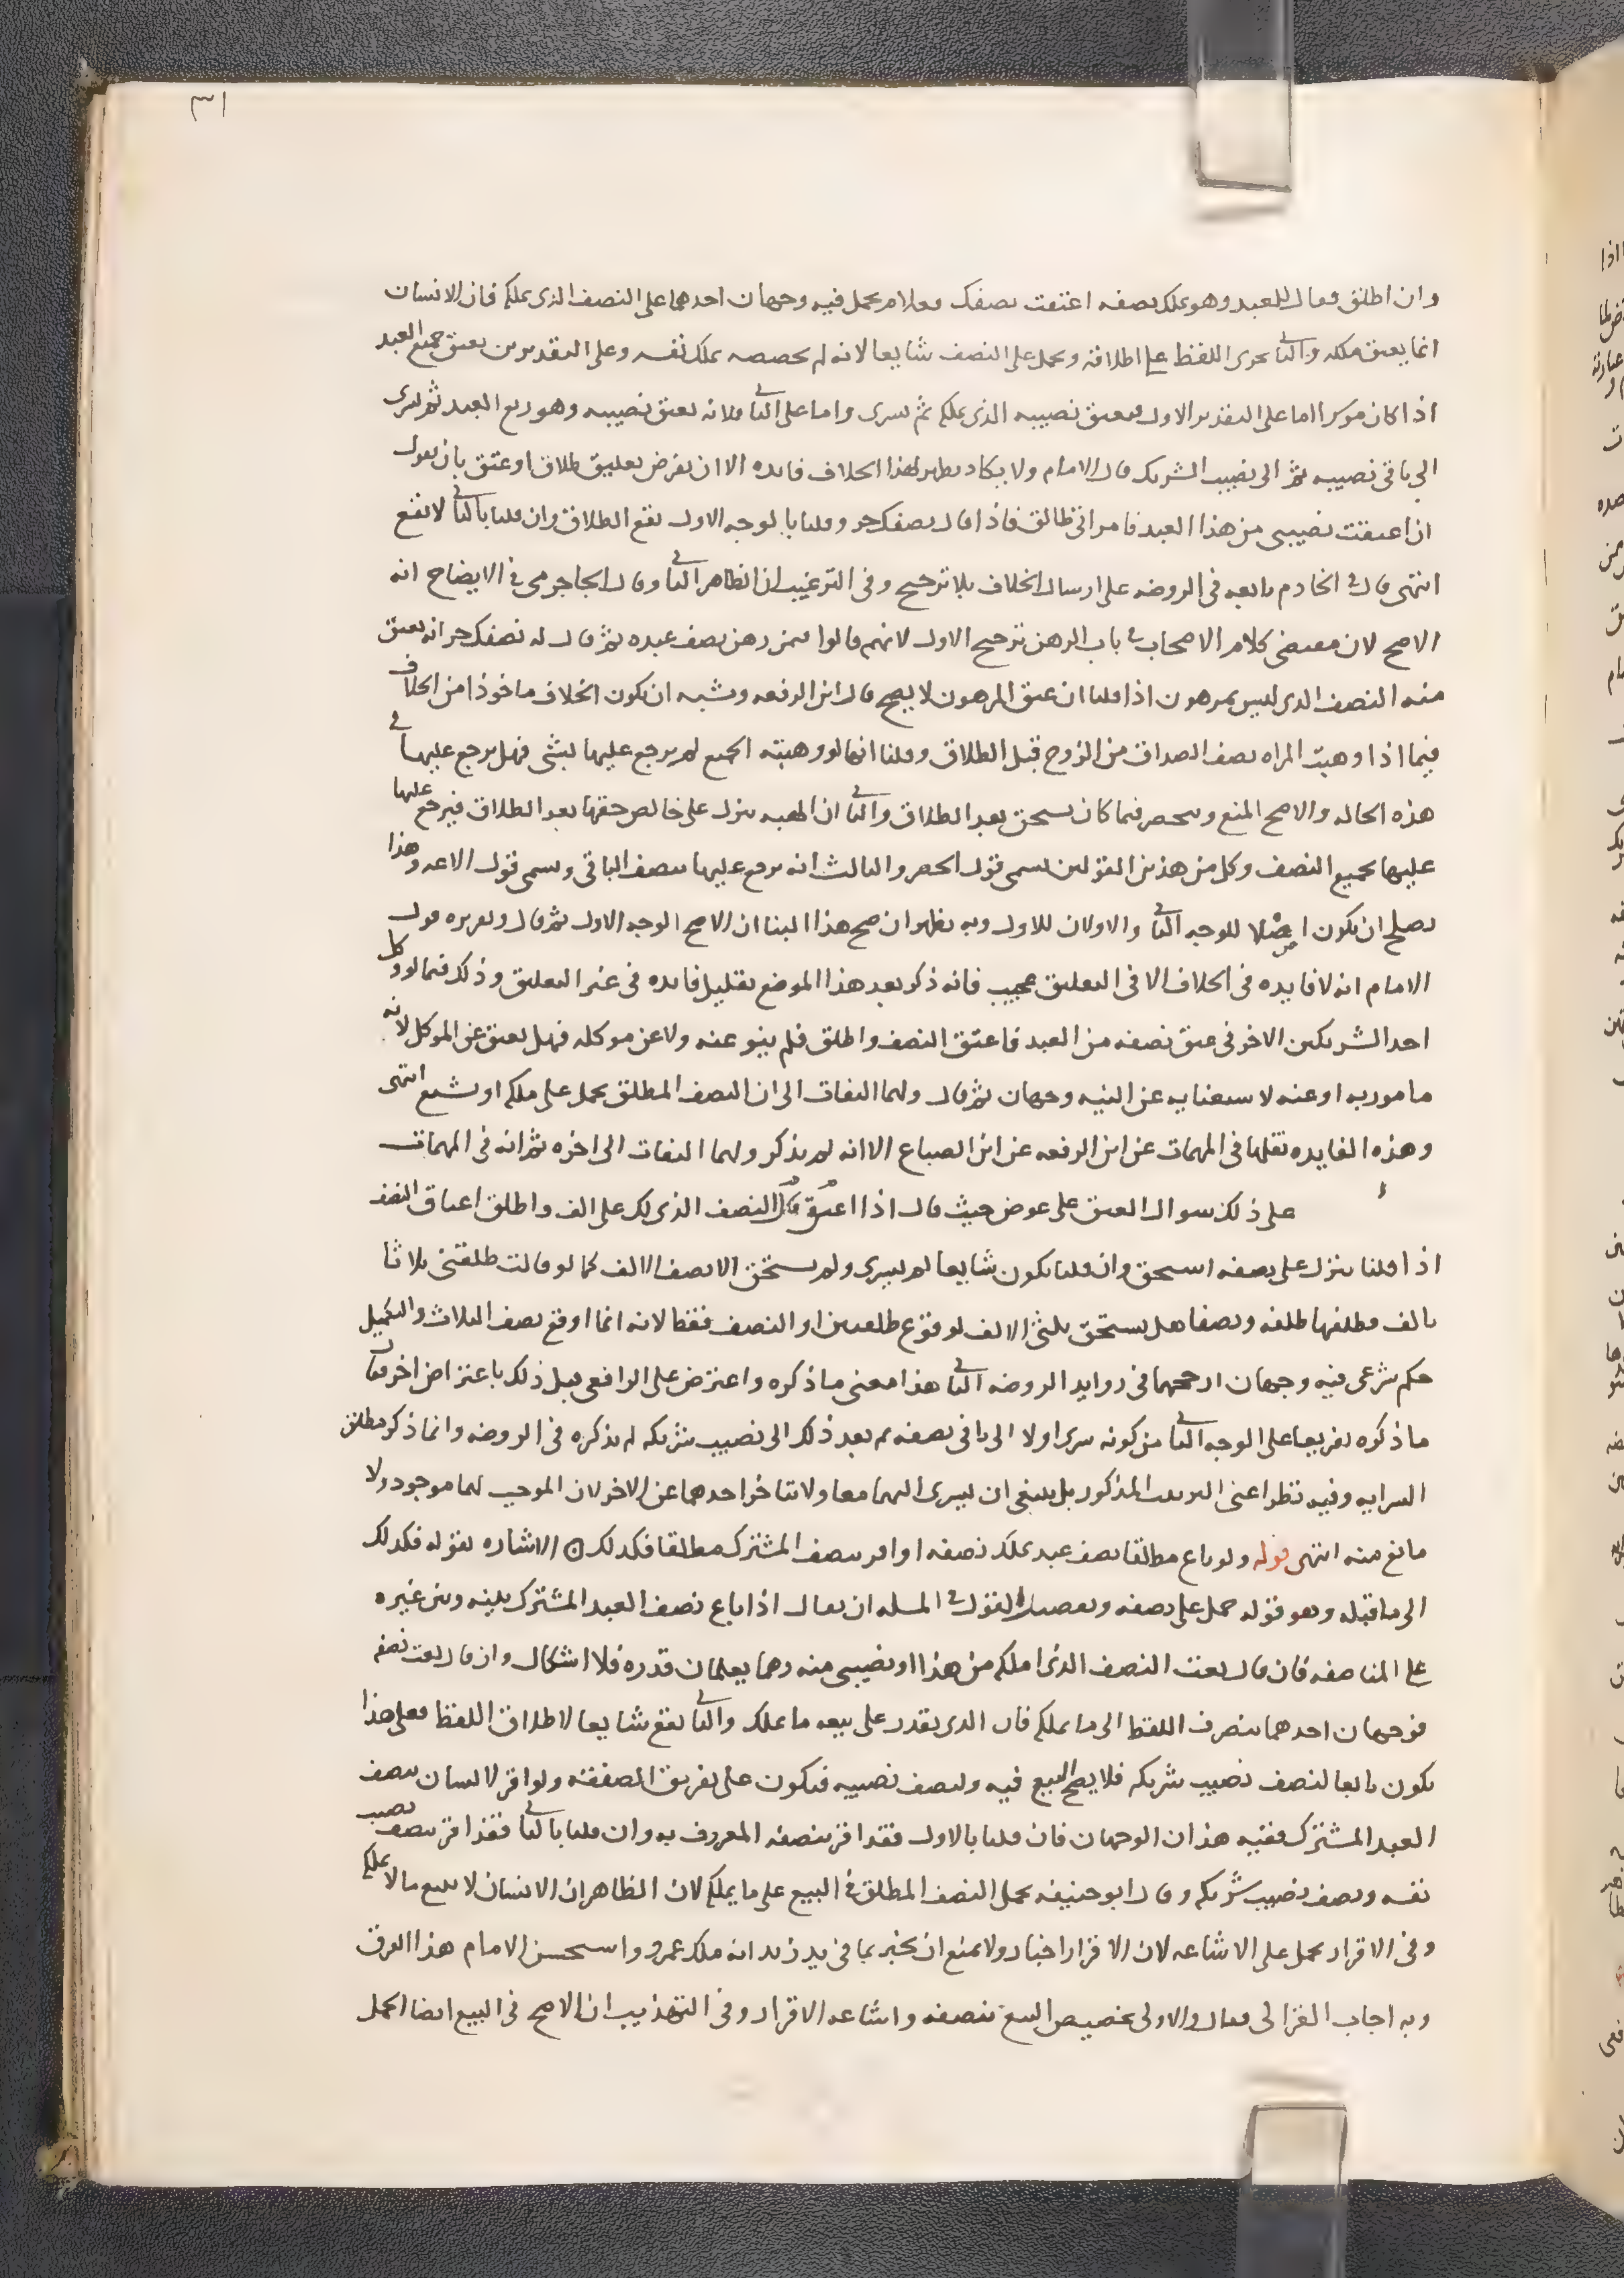 ٣١
وان اطلق فقال للعبد وهو يملك نصفه اعتقت نصفك فعلام يحمل فيه وجهان احدهما على النصف الذى يملكه فان الانسان
انما يعتق ملكه والثانى يجرى اللفظ على اطلاقه ويحمل على النصف شايعا لانه لم يخصصه بملك نفسه وعلى التقديرين يعتق جميع العبد
اذا كان موسرا اما على التقدير الاول فيعتق نصيبه الذى يملكه ثم يسرى واما على الثانى فلانه يعتق نصيبه وهو ربع العبد ثم يسرى
الى باقى نصيبه ثم الى نصيب الشريك قال الامام ولا يكاد يظهر لهذا الخلاف فايده الا ان يفرض تعليق طلاق او عتق بان يقول
ان اعتقت نصيبى من هذا العبد فامراتى طالق فاذا قال نصفك حر وقلنا بالوجه الاول يقع الطلاق وان قلنا بالثانى لا يقع
انتهى قال فى الخادم تابعه فى الروضه على ارسال الخلاف بلا ترجيح وفى الترغيب ان الظاهر الثانى وقال الجاجرمى فى الايضاح انه
الاصح لان مقتضى كلام الاصحاب فى باب الرهن ترجيح الاول لانهم قالوا فيمن رهن نصف عبده ثم قال له نصفك حر انه يعتق
منه النصف الذى ليس بمرهون اذا قلنا ان عتق المرهون لا يصح قال ابن الرفعه ويشبه ان يكون الخلاف ماخوذا من الخلاف
فيما اذا وهبت المراه نصف الصداق من الزوج قبل الطلاق وقلنا انها لو وهبته الجميع لم يرجع عليها بشى فهل يرجع عليها فى
هذه الحاله والاصح المنع وينحصر فيما كان يستحق بعد الطلاق والثانى ان الهبه تنزل على خالص حقها بعد الطلاق فيرجع عليها
عليها بجميع النصف وكل من هذين القولين يسمى قول الحصر والثالث انه يرجع عليها بنصف الباقى ويسمى قول الاشاعه وهذا
يصلح ان يكون اصلا للوجه الثانى والاولان للاول وبه يظهر ان صح هذا البنا ان الاصح الوجه الاول ثم قال وتقريره قول
الامام انه لا فايده فى الخلاف الا فى التعليق عجيب فانه ذكر بعد هذا الموضع بقليل فايده فى غير التعليق وذلك فيما لو وكل
احد الشريكين الاخر فى عتق نصفه من العبد فاعتق النصف واطلق فلم ينو عنه ولا عن موكله فهل يعتق عن الموكل لانه
مامور به او عنه لاستغنايه عن النيه وجهان ثم قال ولهما التفات الى ان النصف المطلق يحمل على ملكه او يشيع انتهى
وهذه الفايده نقلها فى المهمات عن ابن الرفعه عن ابن الصباغ الا انه لم يذكر ولهما التفات الى اخره ثم انه فى المهمات
على ذلك سوال العتق على عوض حيث قال اذا اعتق قال النصف الذى لك على الف واطلق اعتاق النصف
اذا قلنا ينزل على نصفه استحق وان قلنا يكون شايعا لم يسرى ولم يستحق الا نصف الالف كما لو قالت طلقنى ثلاثا
بالف فطلقها طلقه ونصفا هل يستحق ثلثى الالف لوقوع طلقتين او النصف فقط لانه انما اوقع نصف الثلاث والتكميل
حكم شرعى فيه وجهان ارجحهما فى زوايد الروضه الثانى هذا معنى ما ذكره واعترض على الرافعى قبل ذلك باعتراض اخر فقال
ما ذكره تفريعا على الوجه الثانى من كونه يسرى اولا الى باقى نصفه ثم بعد ذلك الى نصيب شريكه لم يذكره فى الروضه وانما ذكر مطلق
السرايه وفيه نظر اعنى الترتيب المذكور بل ينبغى ان يسرى اليهما معا ولا يتاخر احدهما عن الاخر لان الموجب لهما موجود ولا
مانع منه انتهى قوله ولو باع مطلقا نصف عبد يملك نصفه او اقر بنصف المشترك مطلقا فكذلك ۞ الاشاره بقوله فكذلك
الى ما قبله وهو قوله حمل على نصفه وتفصيل القول فى المسله ان يقال اذا باع نصف العبد المشترك بينه وبين غيره
على المناصفه فان قال بعت النصف الذى املكه من هذا او نصيبى منه وهما يعلمان قدره فلا اشكال وان قال بعت نصفه
فوجهان احدهما ينصرف اللفظ الى ما يملكه فان الذى يقدر على بيعه ما يملك والثانى يقع شايعا لاطلاق اللفظ فعلى هذا
يكون بايعا لنصف نصيب شريكه فلا يصح البيع فيه ولنصف نصيبه فيكون على تفريق الصفقه ولو اقر لانسان بنصف
العبد المشترك ففيه هذان الوجهان فان قلنا بالاول فقد اقر بنصفه المعروف به وان قلنا بالثانى فقد اقر بنصف نصيب
نفسه ونصف نصيب شريكه وقال ابو حنيفه يحمل النصف المطلق فى البيع على ما يملكه لان الظاهر ان الانسان لا يبيع ما لا يملكه
وفى الاقرار يحمل على الاشاعه لان الاقرار اخبار ولا يمنع ان يخبر بما فى يد زيد انه ملك عمرو واستحسن الامام هذا الفرق
وبه اجاب الغزالى فقال والاولى تخصيص البيع بنصفه واشاعه الاقرار وفى التهذيب ان الاصح فى البيع ايضا الحمل